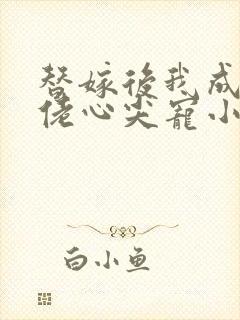 替嫁后我成
佬心尖宠小
白小鱼